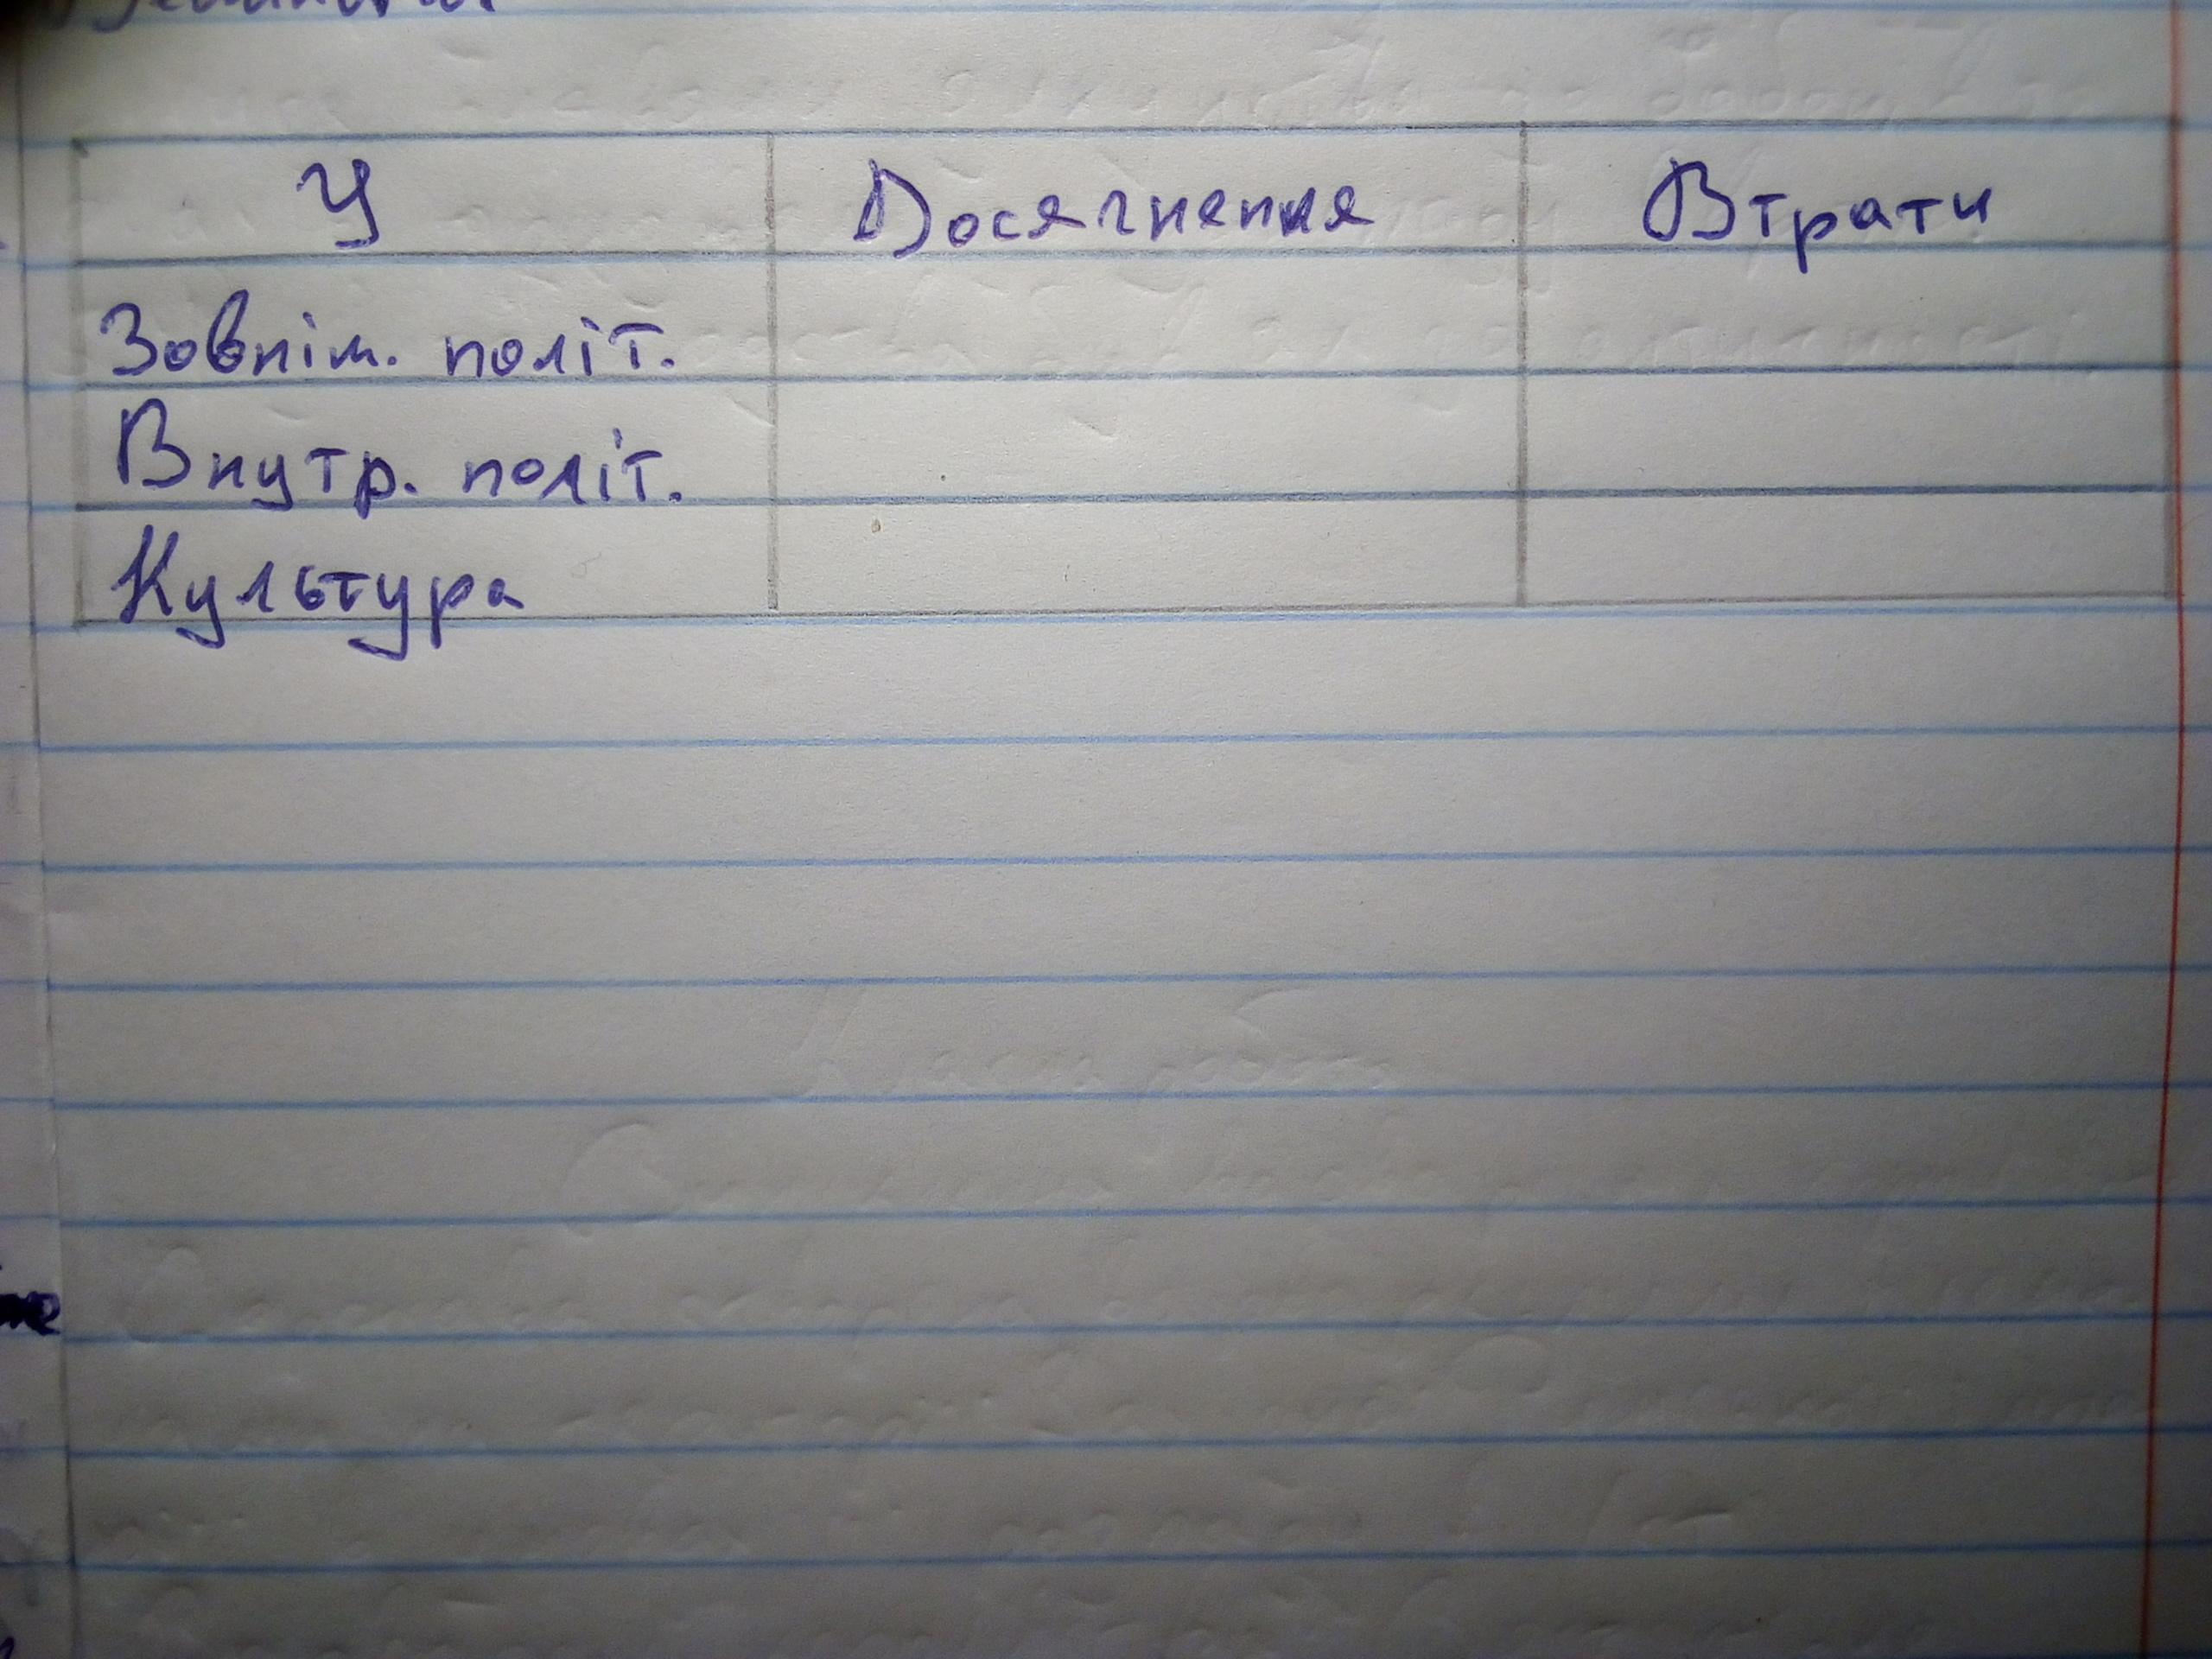 У Досягнення Втрати
Зовніш. політ.
Внутр. політ.
Культура